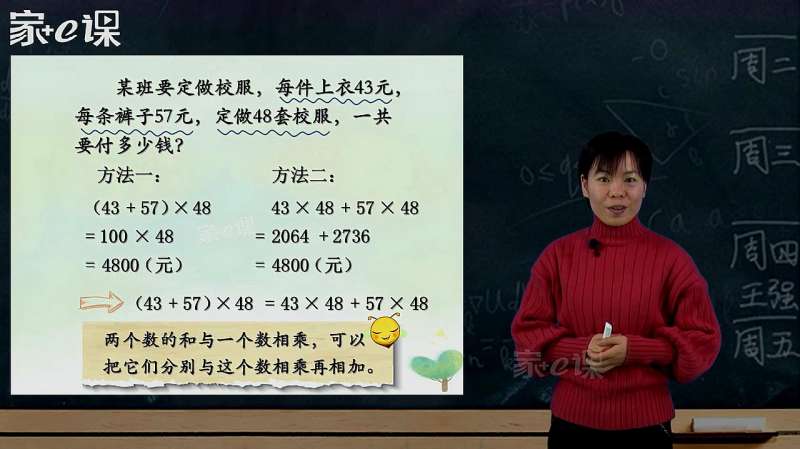 家+e课
某班要定做校服，每件上衣43元，
每条裤子57元，定做48套校服，一共
要付多少钱？
方法一： 方法二：
（43 + 57）× 48 43 × 48 + 57 × 48
= 100 × 48 = 2064 +2736
= 4800（元） = 4800（元）
（43 + 57）× 48 = 43 × 48 + 57 × 48
两个数的和与一个数相乘，可以
把它们分别与这个数相乘再相加。
家+e课
家+e课
周二
周三
周四
王强
周五